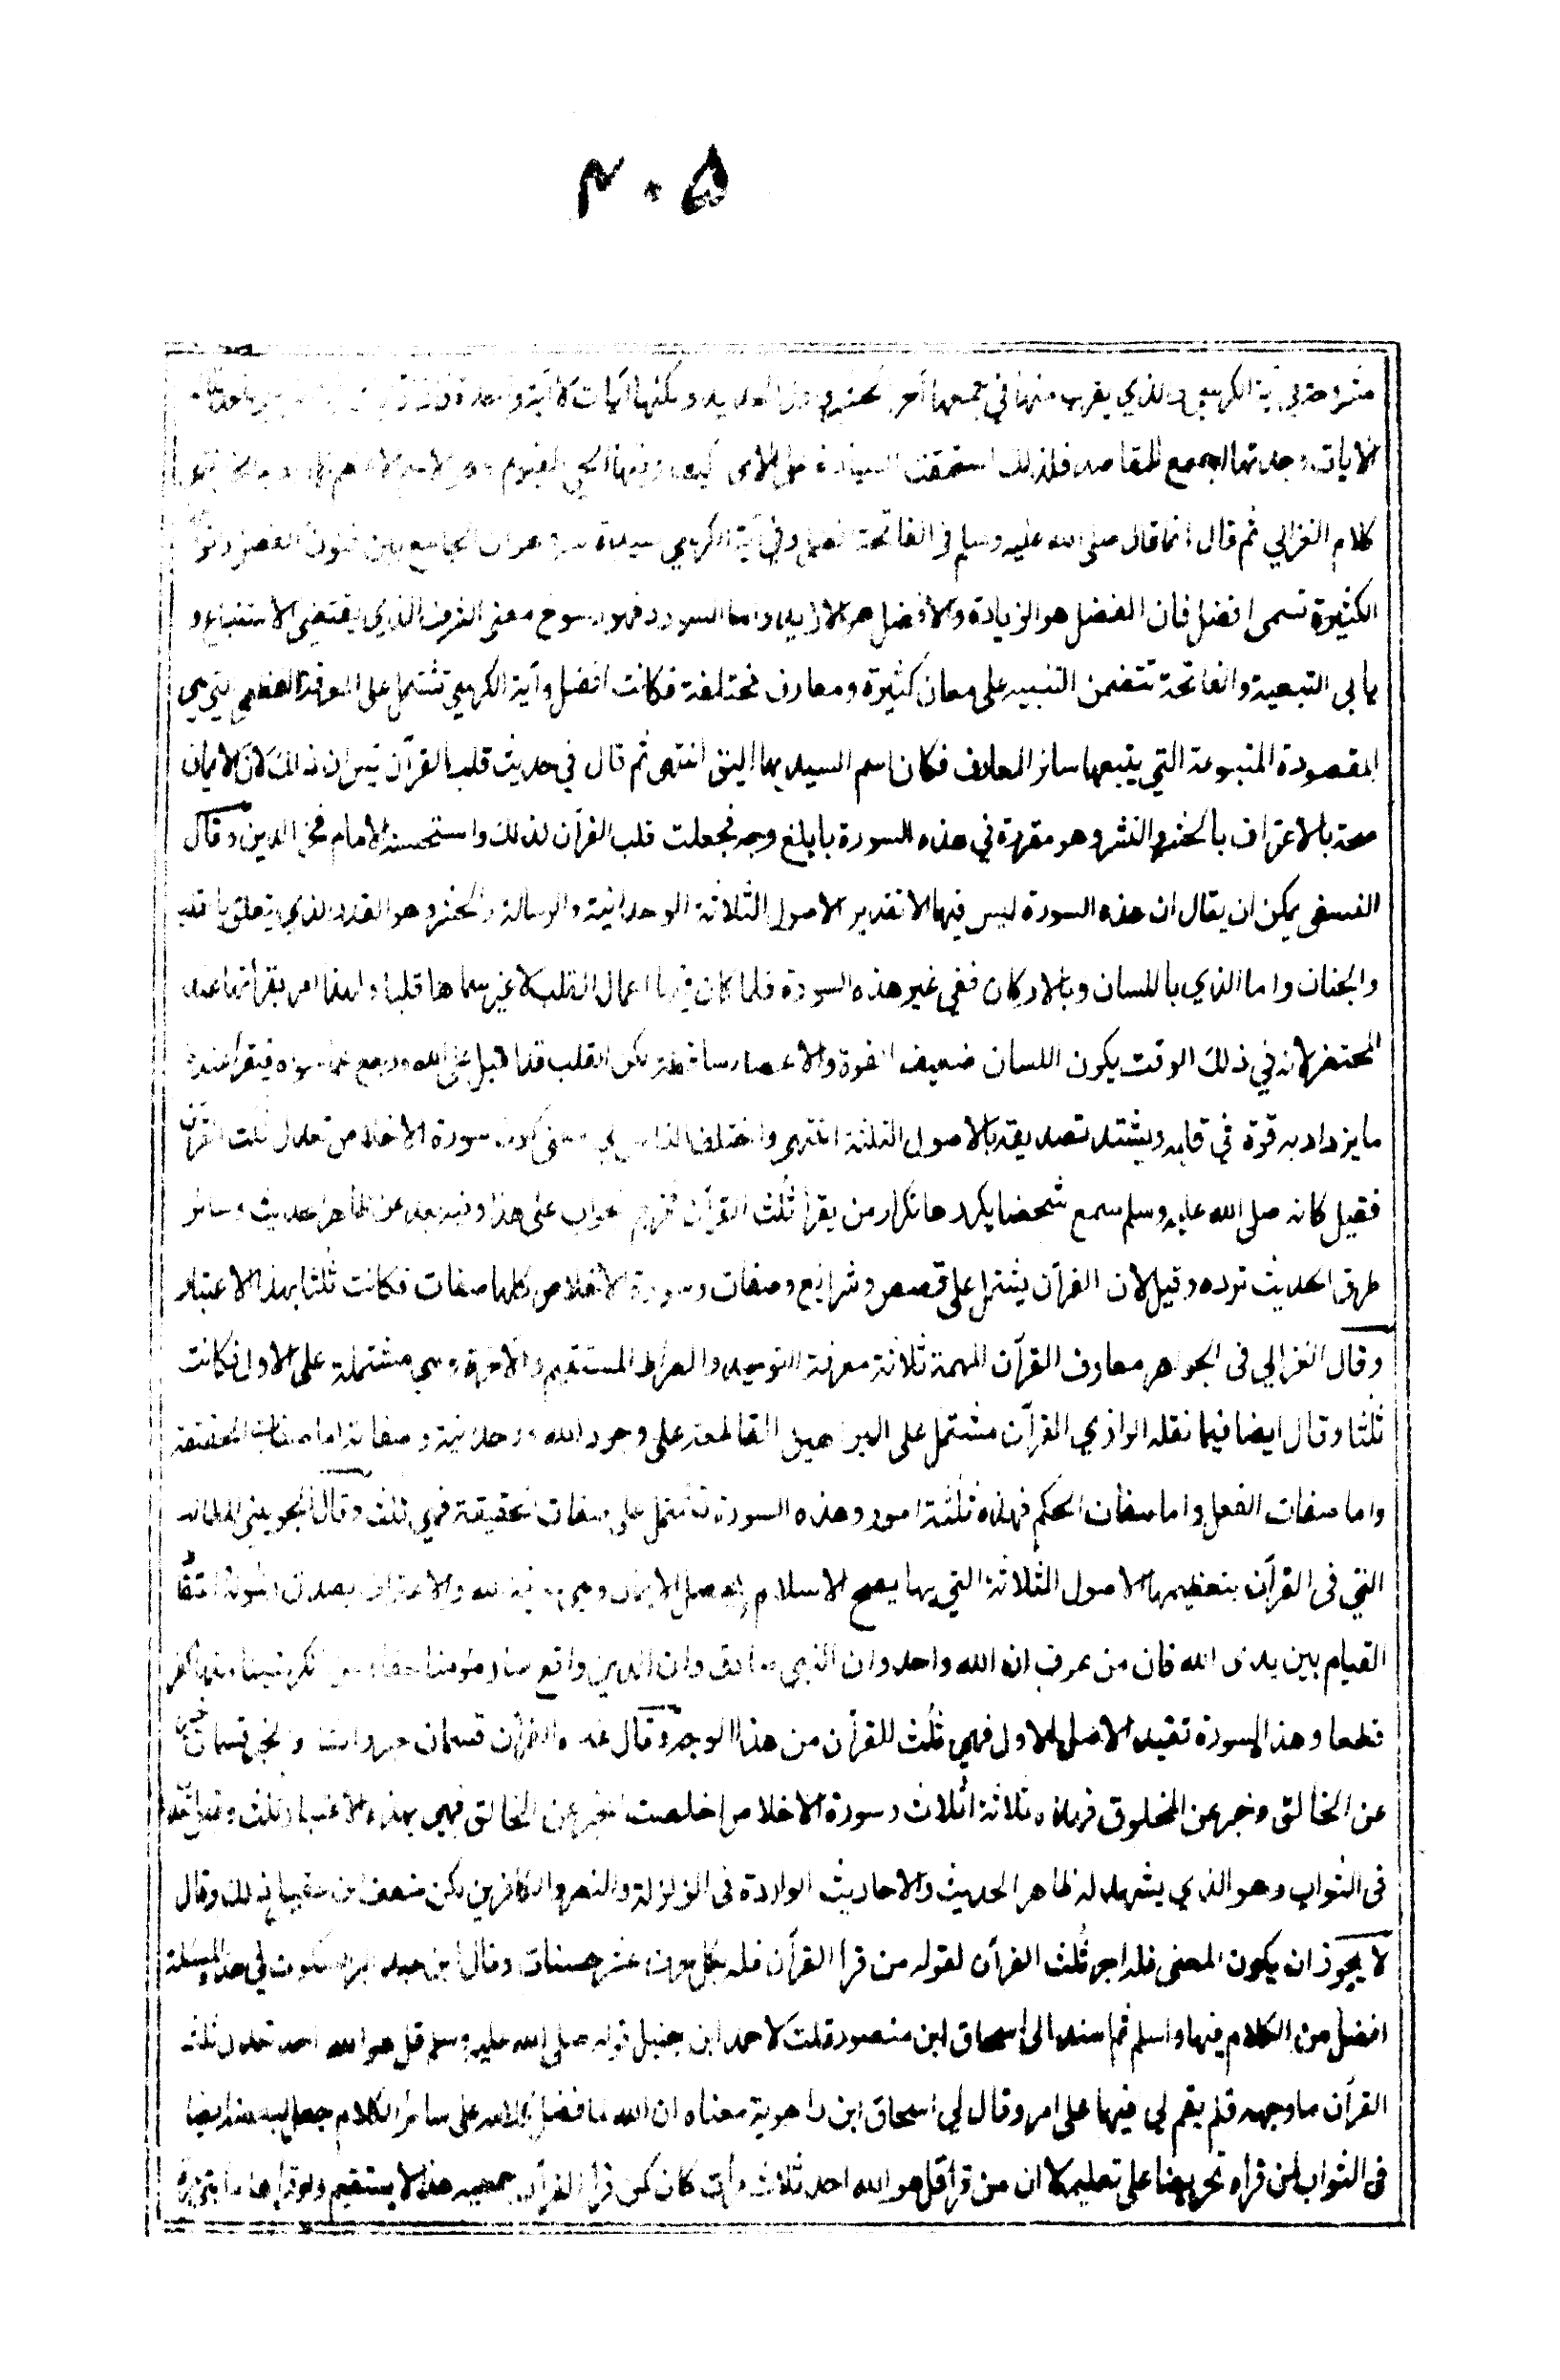 ٤٠٥
مشروحة في آية الكرسي والذي يقرب منها في جمعها آخر الحشر واول الحديد ولكنها آيات لا آية واحدة
الآيات وجدتها اجمع للمقاصد فلذلك استحقت السيادة على الآى كيف وفيها الحي القيوم وهو الاسم الاعظم
كلام الغزالي ثم قال انما قال صلى الله عليه وسلم فى الفاتحة افضل وفي آية الكرسي سيدة لسر وهو ان الجامع بين فنون الفضل وانواعه
الكثيرة تسمى افضل فان الفضل هو الزيادة والافضل هو الازيد واما السودد فهو رسوخ معنى الشرف الذي يقتضي الاستتباع و
يأبى التبعية والفاتحة تتضمن التنبيه على معان كثيرة ومعارف مختلفة فكانت افضل وآية الكرسي تشتمل على المعرفة العظمى التي هي
المقصودة المتبوعة التي يتبعها سائر المعارف فكان اسم السيد بها اليق انتهى ثم قال في حديث قلب القرآن يس ان ذلك لان الايمان
صحته بالاعتراف بالحشر والنشر وهو مقرر في هذه السورة بابلغ وجه فجعلت قلب القرآن لذلك واستحسنه الامام فخر الدين وقال
النسفى يمكن ان يقال ان هذه السورة ليس فيها الا تقدير الاصول الثلاثة الوحدانية والرسالة والحشر وهو القدر الذي يتعلق بالقلب
والجنان واما الذي باللسان وبالاركان ففي غير هذه السورة فلما كان فيها اعمال القلب لا غير سماها قلبا ولهذا امر بقرأتها عند
المحتضر لانه في ذلك الوقت يكون اللسان ضعيف القوة والاعضاء ساقطة لكن القلب قد اقبل على الله ورجع عما سواه فيقرأ عنده
ما يزداد به قوة في قلبه ويشتد تصديقه بالاصول الثلثة انتهى واختلف الناس في معنى كون سورة الاخلاص تعدل ثلث القرآن
فقيل كانه صلى الله عليه وسلم سمع شخصا يكررها تكرار من يقرأ ثلث القرآن فخرج الجواب على هذا وفيه بعد عن ظاهر الحديث وسائر
طرق الحديث ترده وقيل لان القرآن يشتمل على قصص وشرائع وصفات وسورة الاخلاص كلها صفات فكانت ثلثا بهذا الاعتبار
وقال الغزالي فى الجواهر معارف القرآن المهمة ثلاثة معرفة التوحيد والصراط المستقيم والآخرة وهي مشتملة على الاول فكانت
ثلثا وقال ايضا فيما نقله الرازي القرآن مشتمل على البراهين القاطعة على وجود الله ووحدانيته وصفاته اما صفات الحقيقة
واما صفات الفعل واما صفات الحكم فهذه ثلثة امور وهذه السورة تشتمل على صفات الحقيقة فهي ثلث وقال الجويني المطالب
التي فى القرآن بتعظيمها الاصول الثلاثة التي بها يصح الاسلام ويحصل الايمان وهي معرفة الله والاعتراف بصدق رسوله اعتقاد
القيام بين يدى الله فان من عرف ان الله واحد وان النبي صادق وان الدين واقع صار مؤمنا حقا ومن انكر شيئا منها كفر
قطعا وهذه السورة تفيد الاصل الاول فهي ثلث للقرآن من هذا الوجه وقال غيره القرآن قسمان خبر وانشاء والخبر قسمان خبر
عن الخالق وخبر عن المخلوق فهذه ثلاثة اثلاث وسورة الاخلاص اخلصت الخبر عن الخالق فهي بهذا الاعتبار ثلث وقيل تعدل
فى الثواب وهو الذي يشهد له ظاهر الحديث والاحاديث الواردة فى الزلزلة والنصر والكافرين لكن ضعف ابن عقيل ذلك وقال
لا يجوز ان يكون المعنى فله اجر ثلث القرآن لقوله من قرأ القرآن فله بكل حرف عشر حسنات وقال ابن عبد البر السكوت في هذه المسئلة
افضل من الكلام فيها واسلم ثم اسند الى اسحاق ابن منصور قلت لاحمد ابن حنبل قوله صلى الله عليه وسلم قل هو الله احد تعدل ثلث
القرآن ما وجهه فلم يقم لي فيها على امر وقال لي اسحاق ابن راهوية معناه ان الله لما فضل كلامه على سائر الكلام جعل لبعضه ايضا
فى الثواب لمن قرأه تحريضا على تعليمه لا ان من قرأ قل هو الله احد ثلاث مرات كان كمن قرأ القرآن جميعه هذا لا يستقيم ولو قرأها مأتي مرة